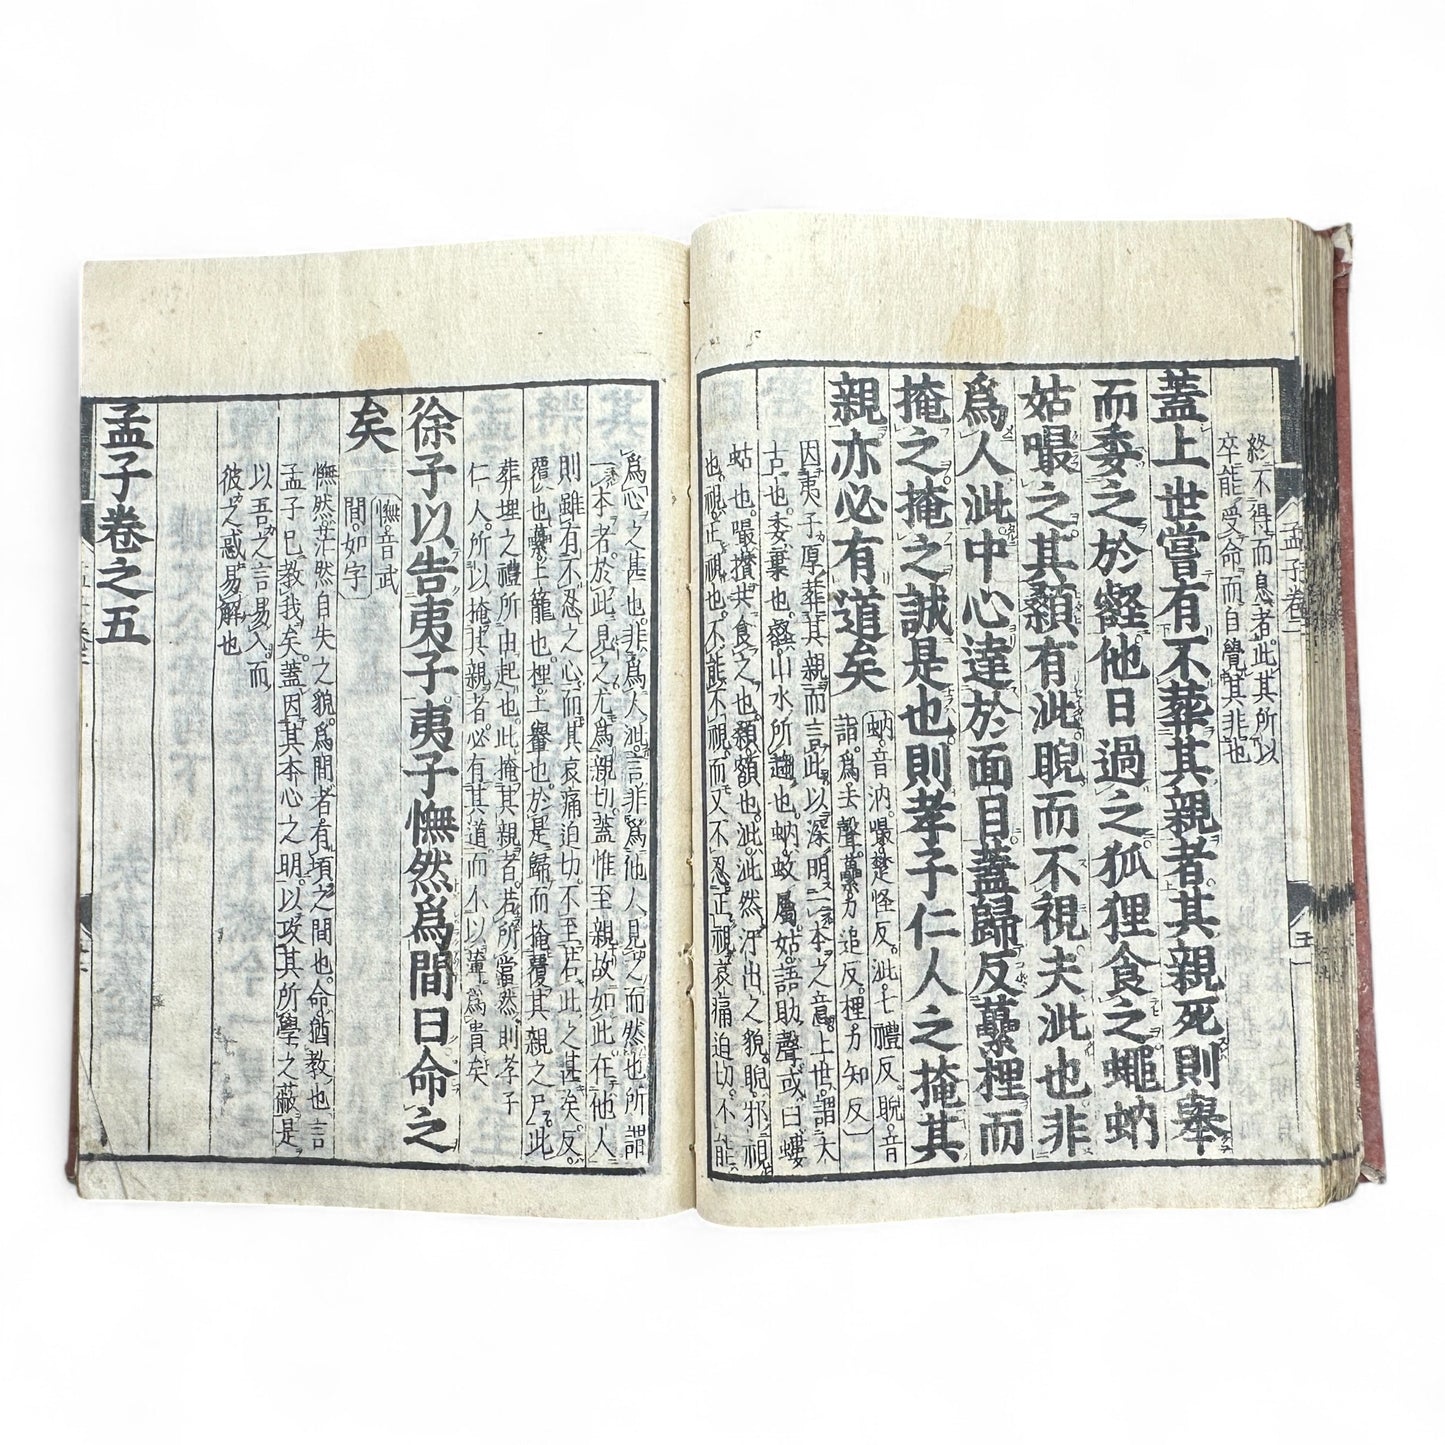 終不得而息者。此其所以
卒能受命而自覺其非也
蓋上世嘗有不葬其親者。其親死則舉
而委之於壑他日過之狐狸食之蠅蚋
姑嘬之。其顙有泚睨而不視夫泚也非
爲人泚。中心達於面目蓋歸反虆梩而
掩之掩之誠是也則孝子仁人之掩其
親亦必有道矣
蚋。音汭。嘬。楚怪反。泚。七禮反。睨。音
詣。爲去聲。虆。力追反。梩力知反
因夷子原葬其親而言此以深明一本之意。上世。謂太
古也。委。棄也。壑。山水所趨也。蚋。蚊屬。姑。語助聲。或曰螻
蛄也。嘬。攢共食之也。顙。額也。泚。泚然汗出之貌。睨。邪視
也。視。正視也。不能不視。而又不忍正視。哀痛迫切。不能
爲心之甚也。非爲人泚。言非爲他人見之而然也所謂
一本者。於此見之尤爲親切。蓋惟至親故如此在他人
則雖有不忍之心。而其哀痛迫切。不至若此之甚矣。反。
覆也。虆。土籠也。梩。土轝也。於是歸而掩覆其親之尸。此
葬埋之禮所由起也。此掩其親者。若所當然。則孝子
仁人。所以掩其親者。必有其道而不以薄爲貴矣
徐子以告夷子。夷子憮然爲間曰命之
矣
憮音武
間。如字
憮然。茫然自失之貌。爲間者。有頃之間也。命。猶教也言
孟子已教我矣。蓋因其本心之明。以攻其所學之蔽是
以吾之言易入。而
彼之惑易解也
孟子卷之五
孟子卷
五